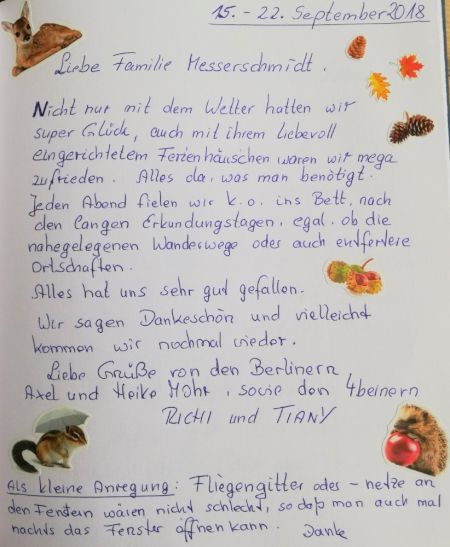 15. - 22. September 2018
Liebe Familie Messerschmidt.
Nicht nur mit dem Wetter hatten wir
super Glück, auch mit ihrem liebevoll
eingerichtetem Ferienhäuschen waren wir mega
zufrieden. Alles da, was man benötigt.
Jeden Abend fielen wir k.o. ins Bett, nach
den langen Erkundungstagen, egal, ob die
nahegelegenen Wanderwege oder auch entferntere
Ortschaften.
Alles hat uns sehr gut gefallen.
Wir sagen Dankeschön und vielleicht
kommen wir nochmal wieder.
Liebe Grüße von den Berlinern,
Axel und Heike Mohr, sowie den 4beinern
RICHI und TIANY
Als kleine Anregung: Fliegengitter oder - netze an
den Fenstern wären nicht schlecht, so daß man auch mal
nachts das Fenster öffnen kann. Danke